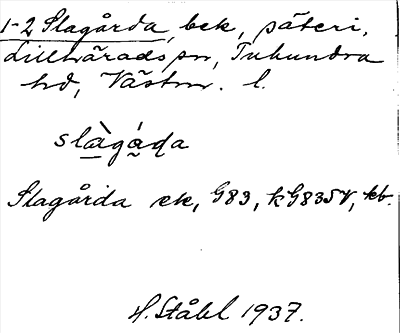 1-2 Slagårda, bek, säteri,
Lillhärads sn, Tuhundra
hd, Västm. l.
slàgáḍa
Slagårda ek, G83, kG835V, kb.
H. Ståhl 1937.